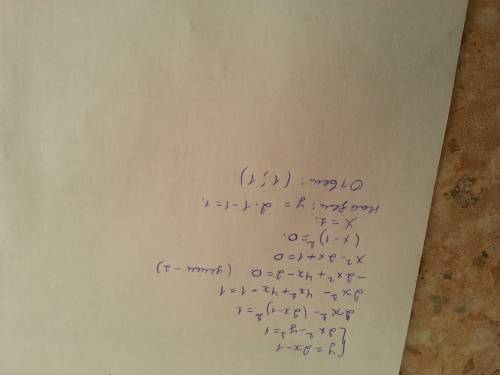 { y = 2x-1
{ 2x² - y² = 1
2x² - (2x-1)² = 1
2x² - 4x² + 4x - 1 = 1
-2x² + 4x - 2 = 0 (делим -2)
x² - 2x + 1 = 0
(x-1)² = 0.
x = 1.
найдем: y = 2·1-1=1.
Ответ: (1; 1)